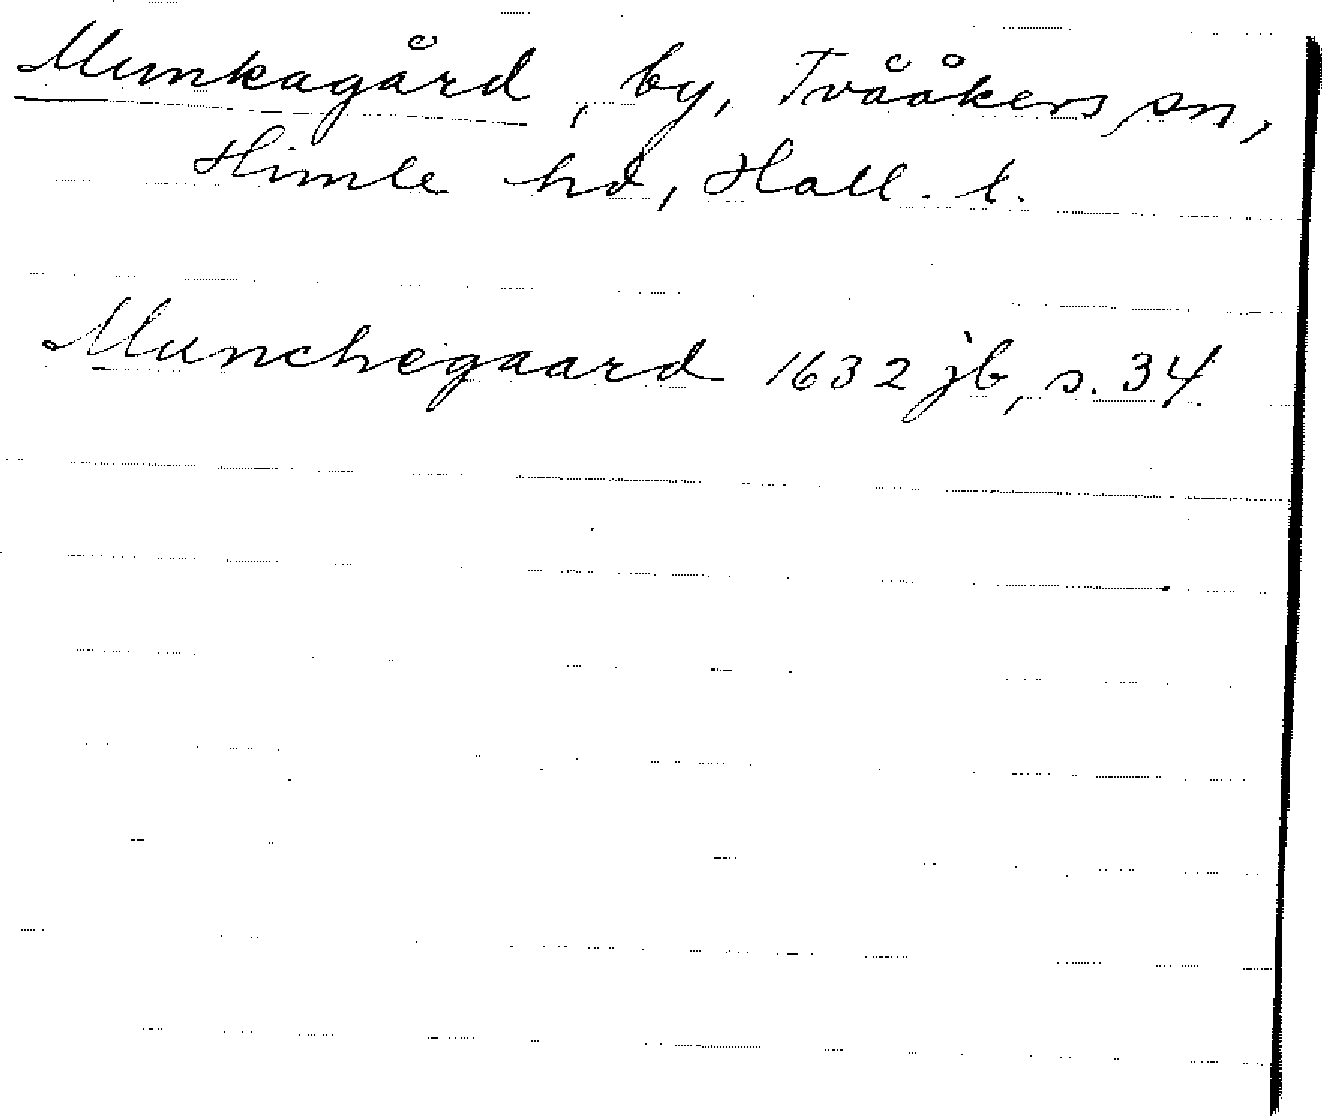 Munkagård, by, Tvååkers sn,
Himle hd, Hall. l.
Munchegaard 1632 jb, s. 34.